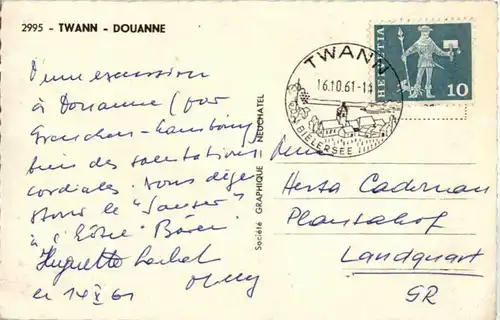 2995 - TWANN - DOUANNE
D'une excursion
à Douanne (par
Grenchen-
bien des salutations
cordiales. Nous dégus-
tons le "Sauser"
à l'hôtel Bären
Huguette
le 14 X 61
Société GRAPHIQUE NEUCHATEL
TWANN
16.10.61-11
BIELERSEE
HELVETIA
10
Herta Caderman
Plantahof
Landquart
GR